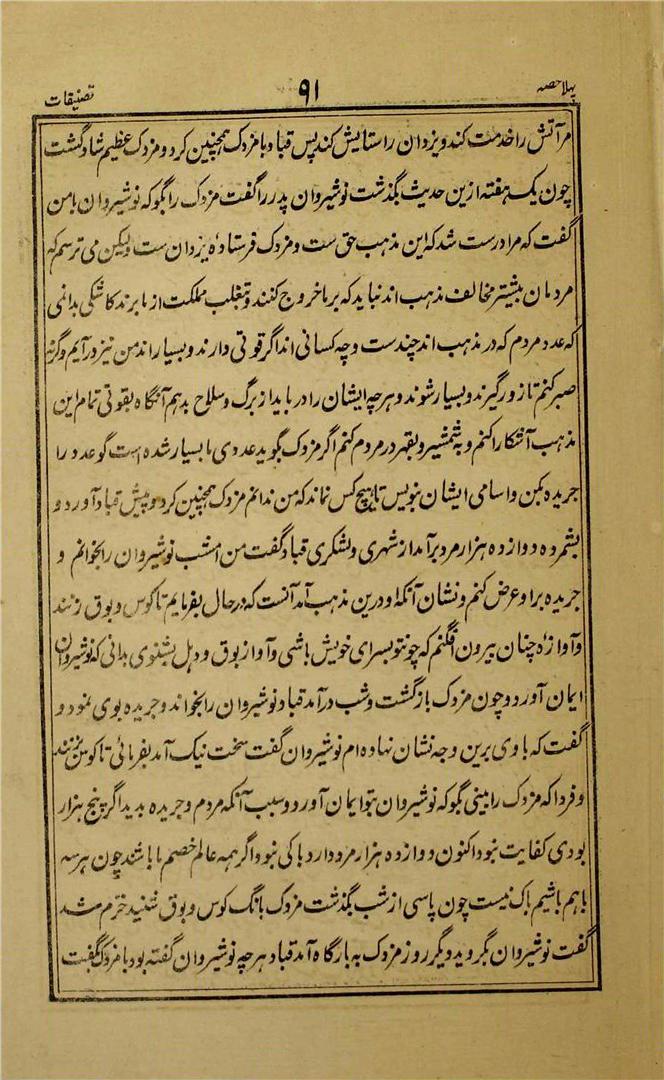 پہلا حصہ ۹۱ تصنیفات
مر آتش را خدمت کند و یزدان را ستایش کند پس قباد با مزدک همچنین کرد و مزدک عظیم شاد گشت
چون یک هفته ازین حدیث بگذشت نوشیروان پدر را گفت مزدک را بگو که نوشیروان با من
گفت که مرا درست شد که این مذهب حق ست و مزدک فرستاده یزدان ست ولیکن می ترسم که
مردمان بیشتر مخالف مذهب اند نباید که بر ما خروج کنند و بتغلب مملکت از ما برند کاشکی بدانمی
که عدد مردم که در مذهب اند چند ست و چه کسانی اند اگر قوتی دارند و بسیار اند من نیز در آیم وگرنه
صبر کنم تا زور گیرند و بسیار شوند و هر چه ایشان را در باید از برگ و سلاح بدهم آنگاه بقوتی تمام این
مذهب آشکارا کنم و به شمشیر و بقهر در مردم کنم اگر مزدک بگوید عددی ما بسیار شده است گو عدد را
جریده بکن و اسامی ایشان بنویس تا هیچ کس نماند که من ندانم مزدک همچنین کرد و پیش قباد آورد و
بشمرد ه دوازده هزار مرد بر آمد از شهری و لشکری قباد گفت من امشب نوشیروان را بخوانم و
جریده برا و عرض کنم و نشان آنکه او درین مذهب آمد آنست که در حال بفرمایم تا کوس و بوق زنند
و آوازه چنان بیرون افگنم که چو تو بسرای خویش باشی و آواز بوق و دهل بشنوی بدانی که نوشیروان
ایمان آورد و چون مزدک بازگشت و شب در آمد قباد نوشیروان را بخواند و جریده بوی نمود و
گفت که با وی برین وجه نشان نهاده ام نوشیروان گفت سخت نیک آمد بفرمائی تا کوس بزنند
و فردا که مزدک را بینی بگو که نوشیروان بتو ایمان آورد و سبب آنکه مردم و جریده بدید اگر پنج هزار
بودی کفایت نبود اکنون دوازده هزار مرد دارد باکی نبود اگر همه عالم خصم ما باشند چون هر سه
با هم باشیم باک نیست چون پاسی از شب بگذشت مزدک بانگ کوس و بوق شنید خرم شد
گفت نوشیروان بگروید دیگر روز مزدک به بارگاه آمد قباد هر چه نوشیروان گفته بود با مزدک بگفت